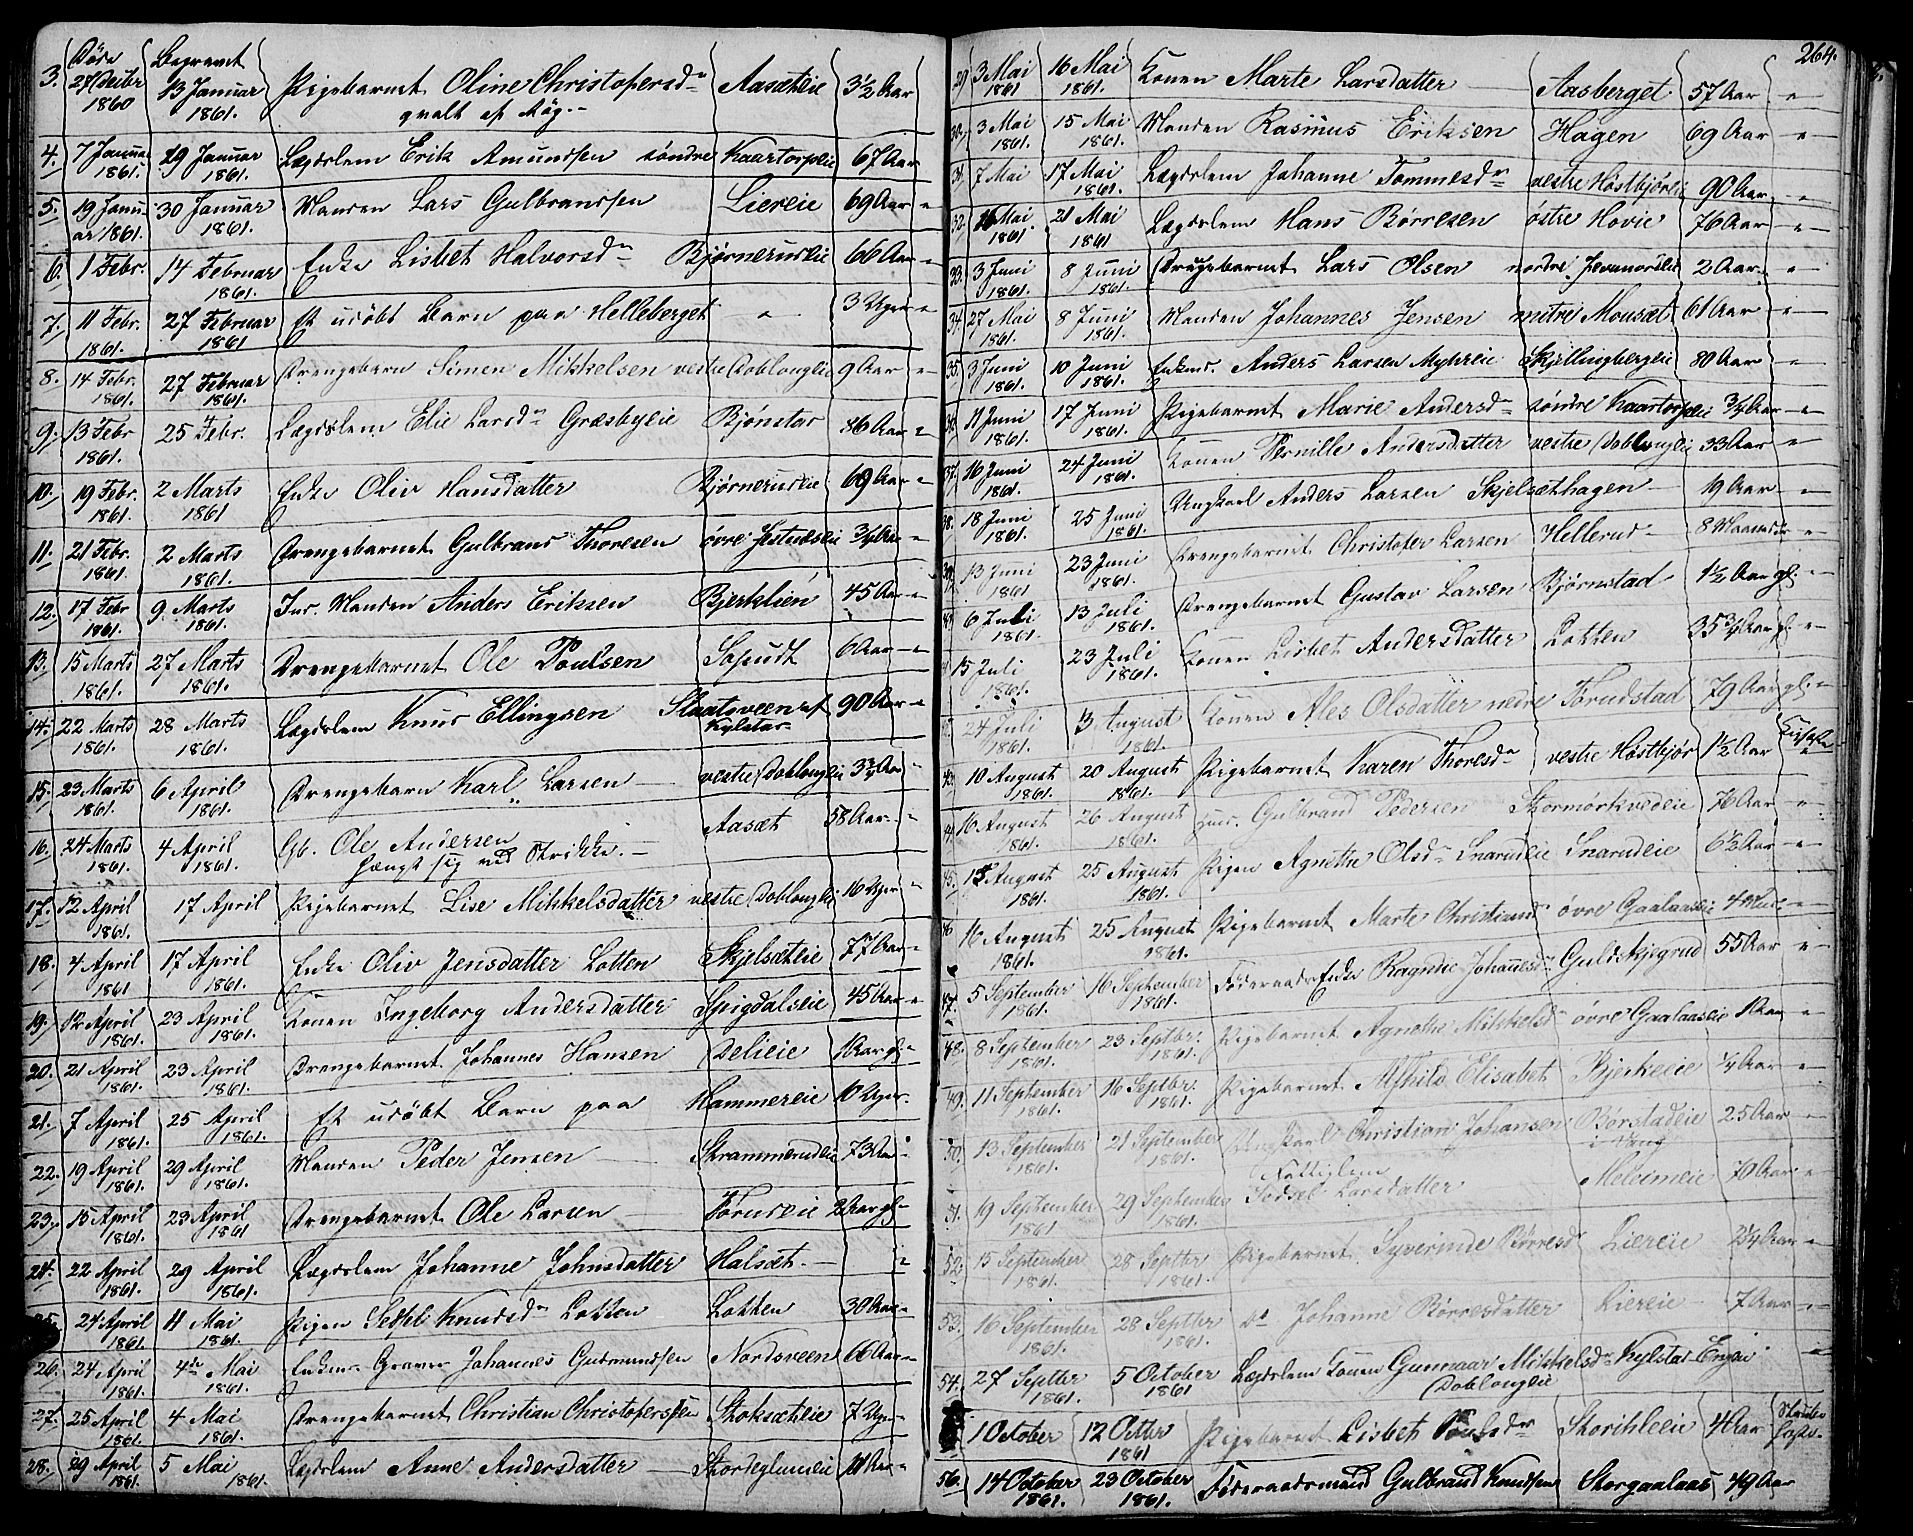 Døde Begravet
3. 27 Decbr 13 Januar Pigebarnet Oline Christophersdr Aasæteie 3½ Aar
1860 1861. qvalt af Røg.
4. 7 Januar 29 Januar Lægdslem Erik Amundsen søndre Kaartorpeie 67 Aar
1861. 1861.
5. 19 Janu- 30 Januar Manden Lars Gulbrandsen Liereie 69 Aar "
ar 1861. 1861.
6. 1 Febr. 14 Februar Enke Lisbet Halvorsdr Bjørnerudeie 66 Aar "
1861.
7. 11 Febr. 27 Februar Et udøbt Barn paa Helleberget " 3 Uger "
1861. 1861
8. 14 Febr. 27 Februar Drengebarn Simen Mikkelsen vestre Doblougeie 9 Aar "
1861. 1861.
9. 13 Febr 25 Febr. Lægdslem Elie Larsdr Græsbyeie Bjønstar 86 Aar "
1861.
10. 19 Febr. 2 Marts Enke Oliv Hansdatter Bjørnerudeie 69 Aar "
1861. 1861
11. 21 Febr. 2 Marts Drengebarnet Gulbrand Thoresen øvre ¾ Aar "
1861. 1861.
12. 17 Febr 9. Marts Inr. Manden Anders Eriksen Bjerklien 45 Aar "
1861. 1861.
13. 15 Marts 27 Marts Drengebarnet Ole Poulsen 6 Aar "
1861. 1861.
14. 22 Marts 28 Marts Lægdslem Knud Ellingsen Slaatsveen af 90 Aar "
1861. 1861. Kylstad
15. 23 Marts 6 April Drengebarn Karl Larsen vestre Doblougeie 3¾ Aar
1861. 1861.
16. 24 Marts 4 April Gb. Ole Andersen Aasæt 58 Aar "
1861. 1861. hængt sig ved Strikke.
17. 12 April 17 April Pigebarnet Lise Mikkelsdatter vestre Doblougeie 16 Uger "
1861.
18. 4 April 17 April Enke Oliv Jensdatter Lotten Skjelsæteie 77 Aar "
1861 1861.
19. 12 April 23 April Konen Ingeborg Andersdatter Spigdalseie 45 Aar "
1861. 1861.
20. 21 April 23 April Drengebarnet Johannes Hansen Delieie 1 Aar gl. "
1861. 1861.
21. 7 April 25 April Et udøbt Barn paa Hammereie 10 Uger.
1861. 1861.
22. 19 April 29 April Manden Peder Jensen Skrammerudeie 73 Aar "
1861. 1861.
23. 15 April 23 April Drengebarnet Ole Larsen Torudeie 2 Aar gl.
1861. 1861
24. 22 April 29 April Lægdslem Johanne Johnsdatter Halsæt. "
1861. 1861.
25. 24 April 11 Mai Pigen Knudsdr Lotten Lotten 30 Aar "
1861. 1861.
26. 24 April 4de Mai Enkem. Graver Johannes Gudmundsen Nordsveen 66 Aar "
1861. 1861.
27. 25 April 4 Mai Drengebarnet Christian Christophersen Stoksæteie 7 Uger "
1861. 1861.
28. 29 April 5 Mai Lægdslem Anne Andersdatter
1861. 1861.
264.
29. 3 Mai 16 Mai Konen Marte Larsdatter Aasberget 57 Aar "
1861 1861.
30. 3 Mai 15 Mai Manden Rasmus Eriksen Hagen 69 Aar "
1861. 1861.
31. 7 Mai 17 Mai Lægdslem Johanne Tommesdr vestre Høstbjøreie 90 Aar "
1861.
32. 16 Mai 21 Mai Lægdslem Hans Børresen østre Hovie 76 Aar "
1861. 1861
33. 3 Juni 8 Juni Drengebarnet Lars Olsen nordre 2 Aar "
1861. 1861.
34. 27 Mai 8 Juni Manden Johannes Jensen mitre Mousæt 61 Aar "
1861. 1861.
35. 3 Juni 10 Juni Enkem. Anders Larsen Myhreie Skjellingbergeie 80 Aar "
1861. 1861.
36. 11 Juni 17 Juni Pigebarnet Marie Andersdr søndre Kaartorpeie ¾ Aar "
1861. 1861.
37. 16 Juni 24 Juni Konen Pernille Andersdatter vestre Doblougeie 33 Aar "
1861. 1861.
38. 18 Juni 25 Juni Ungkarl Anders Larsen Skjelsæthagen 19 Aar "
1861. 1861.
39. 13 Juni 23 Juni Drengebarnet Christofer Larsen Hellerud 8 Maaneder "
1861 1861.
6 Juli 13 Juli Drengebarnet Gustav Larsen Bjørnstad 1½ Aar gl. "
1861. 1861.
15 Juli 23 Juli Konen Lisbet Andersdatter Lotten 35¾ Aar gl. "
1861. 1861.
24 Juli 3 August Konen Ales Olsdatter nedre Torudstad 79 Aar gl. "
1861. 1861.
43. 10 August 20 August Pigebarnet Karen Thoresdr vestre Høstbjør 1½ Aar
1861. 1861.
16 August 26 August Gulbrand Pedersen Stormørkvedeie 76 Aar "
1861. 1861.
45. 13 August 25 August Pigen Agnethe Olsdr Snarudeie Snarudeie 6½ Aar "
1861. 1861.
16 August 25 August Pigebarnet Marte Christiansd øvre Gaalaaseie "
1861. 1861.
47. 5 September 16 September Føderaads Enke Ragnhe Johannesdr Guldskjegrud 55 Aar "
1861. 1861.
48. 8 September 23 Septbr. Pigebarnet Agnethe Mikkelsd øvre Gaalaaseie "
1861. 1861.
49. 11 September 16 Septbr. Pigebarnet Alfhild Elisabet Bjerkeeie ¼ Aar "
1861. 1861.
50. 13 September 21 September Ungkarl Christian Johansen Børstadeie 25 Aar "
1861. 1861. i Vang
Fattiglem
51. 19 September 29 September Sidsel Larsdatter 70 Aar "
1861 1861.
52. 15 September 28 Septbr Pigebarnet Syverinde Børresd Liereie 2¼ Aar "
1861. 1861.
53. 16 September 28 Septbr do Johanne Børresdatter Liereie 7 Aar "
1861. 1861.
54. 27 Septbr 5 October Lægdslem Konen Gunnaar Mikkelsdr Kylstad Engen "
1861. 1861 Doblougeie
1 October 12 Octbr Pigebarnet Lisbet Poulsdr 4 Aar
1861
56. 14 October 23 October Føderaadsmand Gulbrand Knudsen Storgaalaas 49 Aar
1861. 1861.